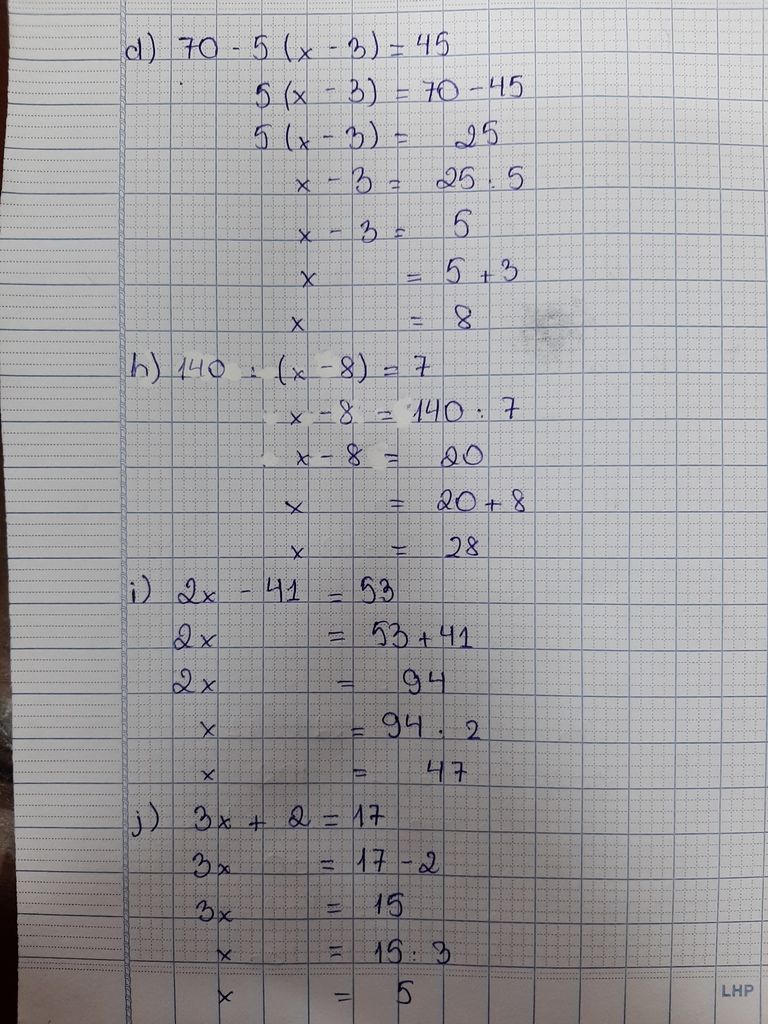 d) 70 - 5 (x - 3) = 45
5 (x - 3) = 70 - 45
5 (x - 3) = 25
x - 3 = 25 : 5
x - 3 = 5
x = 5 + 3
x = 8
h) 140 : (x - 8) = 7
x - 8 = 140 : 7
x - 8 = 20
x = 20 + 8
x = 28
i) 2x - 41 = 53
2x = 53 + 41
2x = 94
x = 94 : 2
x = 47
j) 3x + 2 = 17
3x = 17 - 2
3x = 15
x = 15 : 3
x = 5
LHP